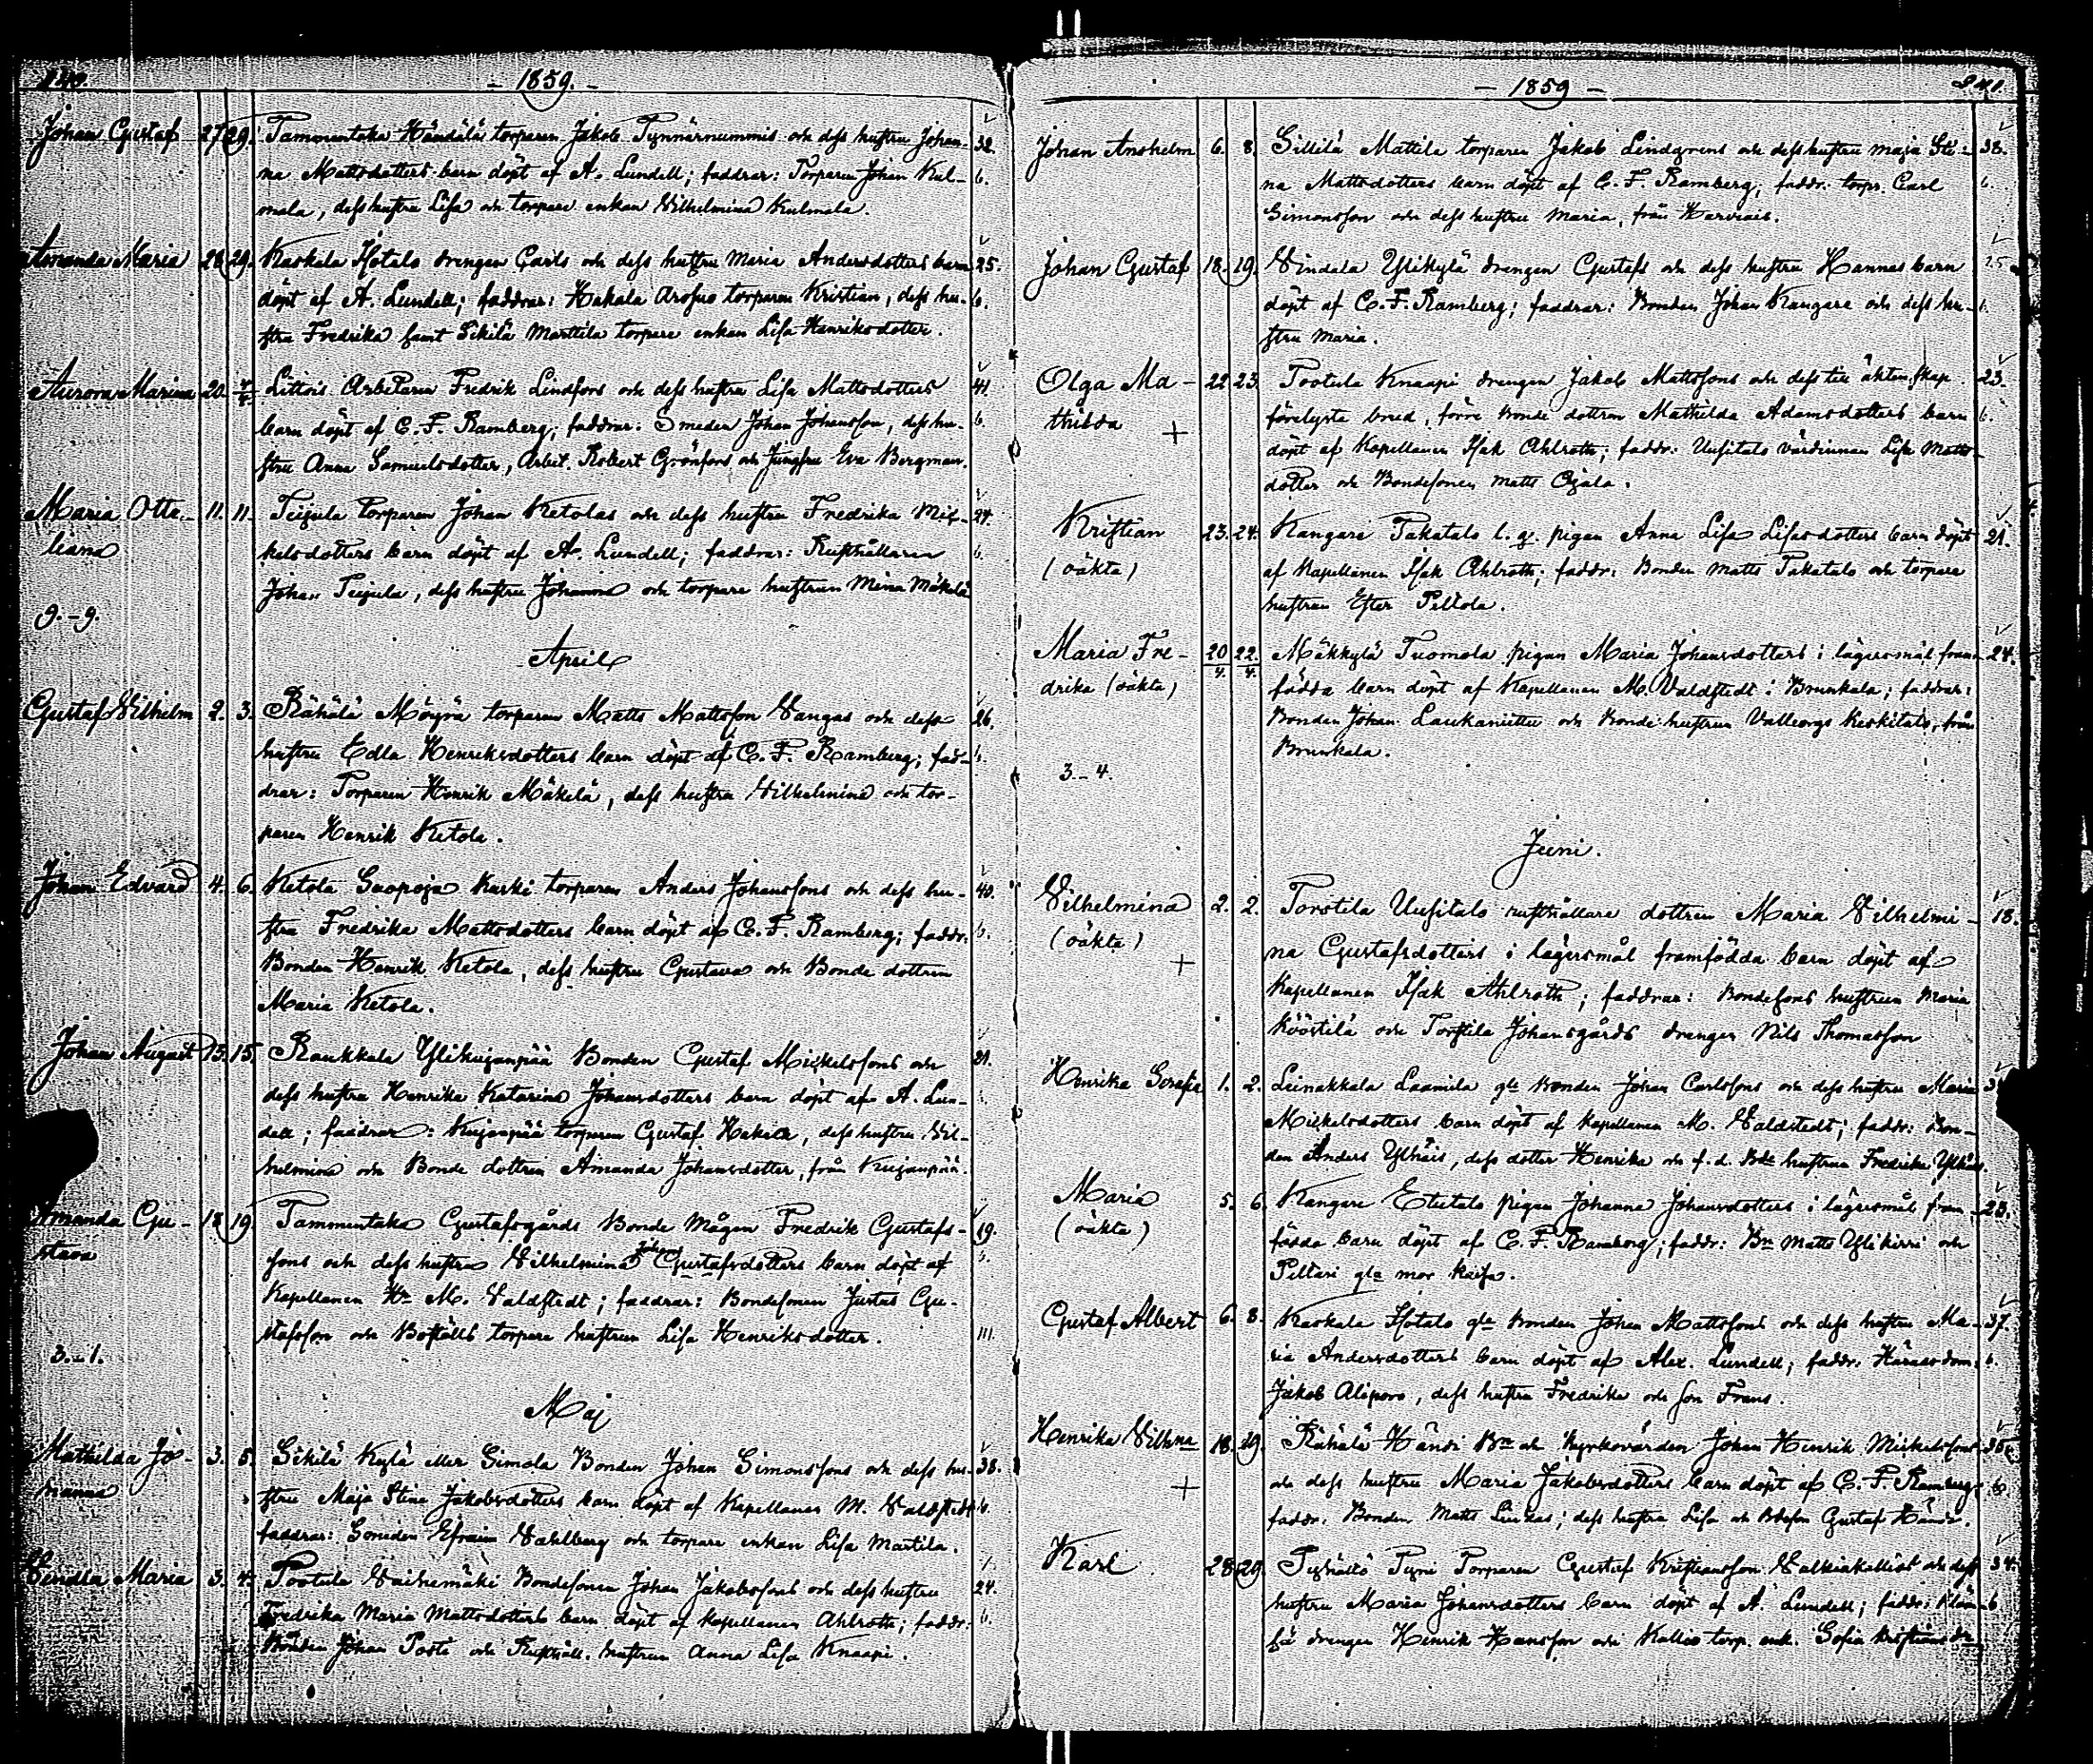 240.
- 1859. -
Johan Gustaf 27. 29. Tammentaka Händälä torparen Jakob Tynnärnummis och dess hustru Johan- 32.
na Mattsdotters barn döpt af A. Lundell; faddrar: Torparen Johan Kul- 6.
mala, dess hustru Lisa och torpare enkan Vilhelmina Kulmala.
Amanda Maria 28. 29. Kaskala Isotalo drengen Carls och dess hustru Maria Andersdotters barn 25.
döpt af A. Lundell; faddrar: Hakala torparen Kristian, dess hu- 6.
stru Fredrika samt Sikilä Marttila torpare enkan Lisa Henriksdotter.
Aurora Marina 20. Littois Arbetaren Fredrik Lindfors och dess hustru Lisa Mattsdotters 41.
barn döpt af C. F. Ramberg; faddrar: Smeden Johan Johansson, dess hu- 6.
stru Anna Samuelsdotter, Arbet. Robert Grönfors och Jungfru Eva Bergman.
Maria Otti- 11. 11. Teijula torparen Johan Ketolas och dess hustru Fredrika Mic- 24.
liana kelsdotters barn döpt af A. Lundell; faddrar: Rusthållaren 6.
Johan Teijula, dess hustru Johanna och torpare hustrun Mina Mäkelä
9. - 9.
April
Gustaf Vilhelm 2. 3. Rähälä Möyrä torparen Matts Mattsson Vangas och dess 26.
hustru Edla Henriksdotters barn döpt af C. F. Ramberg; fad- 6.
drar: Torparen Henrik Mäkelä, dess hustru Vilhelmina och tor-
paren Henrik Ketola.
Johan Edvard 4. 6. Ketola Suopoja Karki torparen Anders Johanssons och dess hu- 40.
stru Fredrika Mattsdotters barn döpt af C. F. Ramberg; faddr: 6.
Bonden Henrik Ketola, dess hustru Gustava och Bonde dottren
Maria Ketola.
Johan August 13. 15. Raukkala Ylikujanpää Bonden Gustaf Mickelssons och 21.
dess hustru Henrika Katarina Johansdotters barn döpt af A. Lun-
dell; faddrar: Kujanpää torparen Gustaf Hakala, dess hustru Vil-
helmina och Bonde dottren Amanda Johansdotter, från Kujanpää.
Amanda Gu- 18. 19. Tammentaka Gustafsgårds Bonde mågen Fredrik Gustafs- 19.
stava sons och dess hustru Vilhelmina Johans Gustafsdotters barn döpt af 6.
Kapellanen Hr M. Valdstedt; faddrar: Bondesonen Justus Gu-
stafsson och Boställs torpare hustrun Lisa Henriksdotter.
3. - 1.
Maj
Mathilda Jo- 3. 5. Sikilä Kylä eller Simola Bonden Johan Simonssons och dess hu- 38.
hanna stru Maja Stina Jakobsdotters barn döpt af Kapellanen M. Valdstedt 6.
faddrar: Smeden Efraim Vahlberg och torpare enkan Lisa Martila.
Vendla Maria 3. 4. Tootula Vaihemäki Bondesonen Johan Jakobssons och dess hustru 24.
Fredrika Maria Mattsdotters barn döpt af Kapellanen Ahlroth; faddr: 6.
Bonden Johan Posti och Rusthåll. hustrun Anna Lisa Knaapi.
- 1859 -
241.
Johan Anshelm 6. 8. Sillilä Mattila torparen Jakob Lindgrens och dess hustru Maja Sti- 38.
na Mattsdotters barn döpt af C. F. Ramberg; faddr. torpr. Carl 6.
Simonsson och dess hustru Maria, från
Johan Gustaf 18. 19. Vindala Ylikylä drengen Gustafs och dess hustru Hannas barn 25
döpt af C. F. Ramberg; faddrar: Bonden Johan Kangare och dess hu- 6.
stru Maria.
Olga Ma- 22. 23. Tootula Knaapi drengen Jakob Mattssons och dess till äktenskap 23.
thilda + förelyste brud, förre Bonde dottren Mathilda Adamsdotters barn 6.
döpt af Kapellanen Isak Ahlroth; faddr: Uusitalo värdinnan Lisa Matts-
dotter och Bondesonen Matts Ojala.
Kristian 23. 24. Kangare Takatalo l. q. pigan Anna Lisa Lisasdotters barn döpt 21.
(oäkta) af Kapellanen Isak Ahlroth; faddr: Bonden Matts Takatalo och torpare
hustrun Ester Peltola.
Maria Fre- 20/4. 22/4. Mäkkylä Tuomola pigan Maria Johansdotters i lägersmål fram- 24.
drika (oäkta) födda barn döpt af Kapellanen M. Valdstedt i Brunkala; faddrar:
Bonden Johan Laukanittu och Bonde hustrun Valborg Keskitalo, från
Brunkala.
3. - 4.
Juni.
Vilhelmina 2. 2. Torstila Uusitalo rusthållare dottren Maria Vilhelmi- 18.
(oäkta) na Gustafsdotters i lägersmål framfödda barn döpt af
+ Kapellanen Isak Ahlroth; faddrar: Bondesons hustrun Maria
Köörtilä och Torstila Johansgårds drengen Nils Thomasson
Henrika Serafia 1. 2. Leinakkala Laamila gle Bonden Johan Carlssons och dess hustru Maria 3
Mickelsdotters barn döpt af Kapellanen M. Valdstedt; faddr: Bon-
den Anders Ylhäis, dess dotter Henrika och f. d. Bde hustrun Fredrika Ylhäis.
Maria 5. 6. Kangare Etutalo pigan Johanna Johansdotters i lägersmål fram- 28.
(oäkta) födda barn döpt af C. F. Ramberg; faddr: Bn Matts Ylikirri och
Peltari gla mor Kaisa.
Gustaf Albert 6. 8. Kaskala Isotalo gle Bonden Johan Mattssons och dess hustru Ma- 37.
ria Andersdotters barn döpt af Alex. Lundell; faddr. Häradsdom: 6.
Jakob Aliporo, dess hustru Fredrika och son Frans.
Henrika Vilhna 18. 19. Rähälä Händi Bn och Kyrkovärden Johan Henrik Mickelssons 35.
+ och dess hustru Maria Jakobsdotters barn döpt af C. F. Ramberg; 6
faddr. Bonden Matts dess hustru Lisa och Bdeson Gustaf Händi.
Karl 28. 29. Pyhältö Pyni Torparen Gustaf Kristiansson Valkiakallios och dess 34.
hustru Maria Johansdotters barn döpt af A. Lundell; faddr: 6
drengen Henrik Hansson och Kallio torp. enk. Sofia Kristiansdr